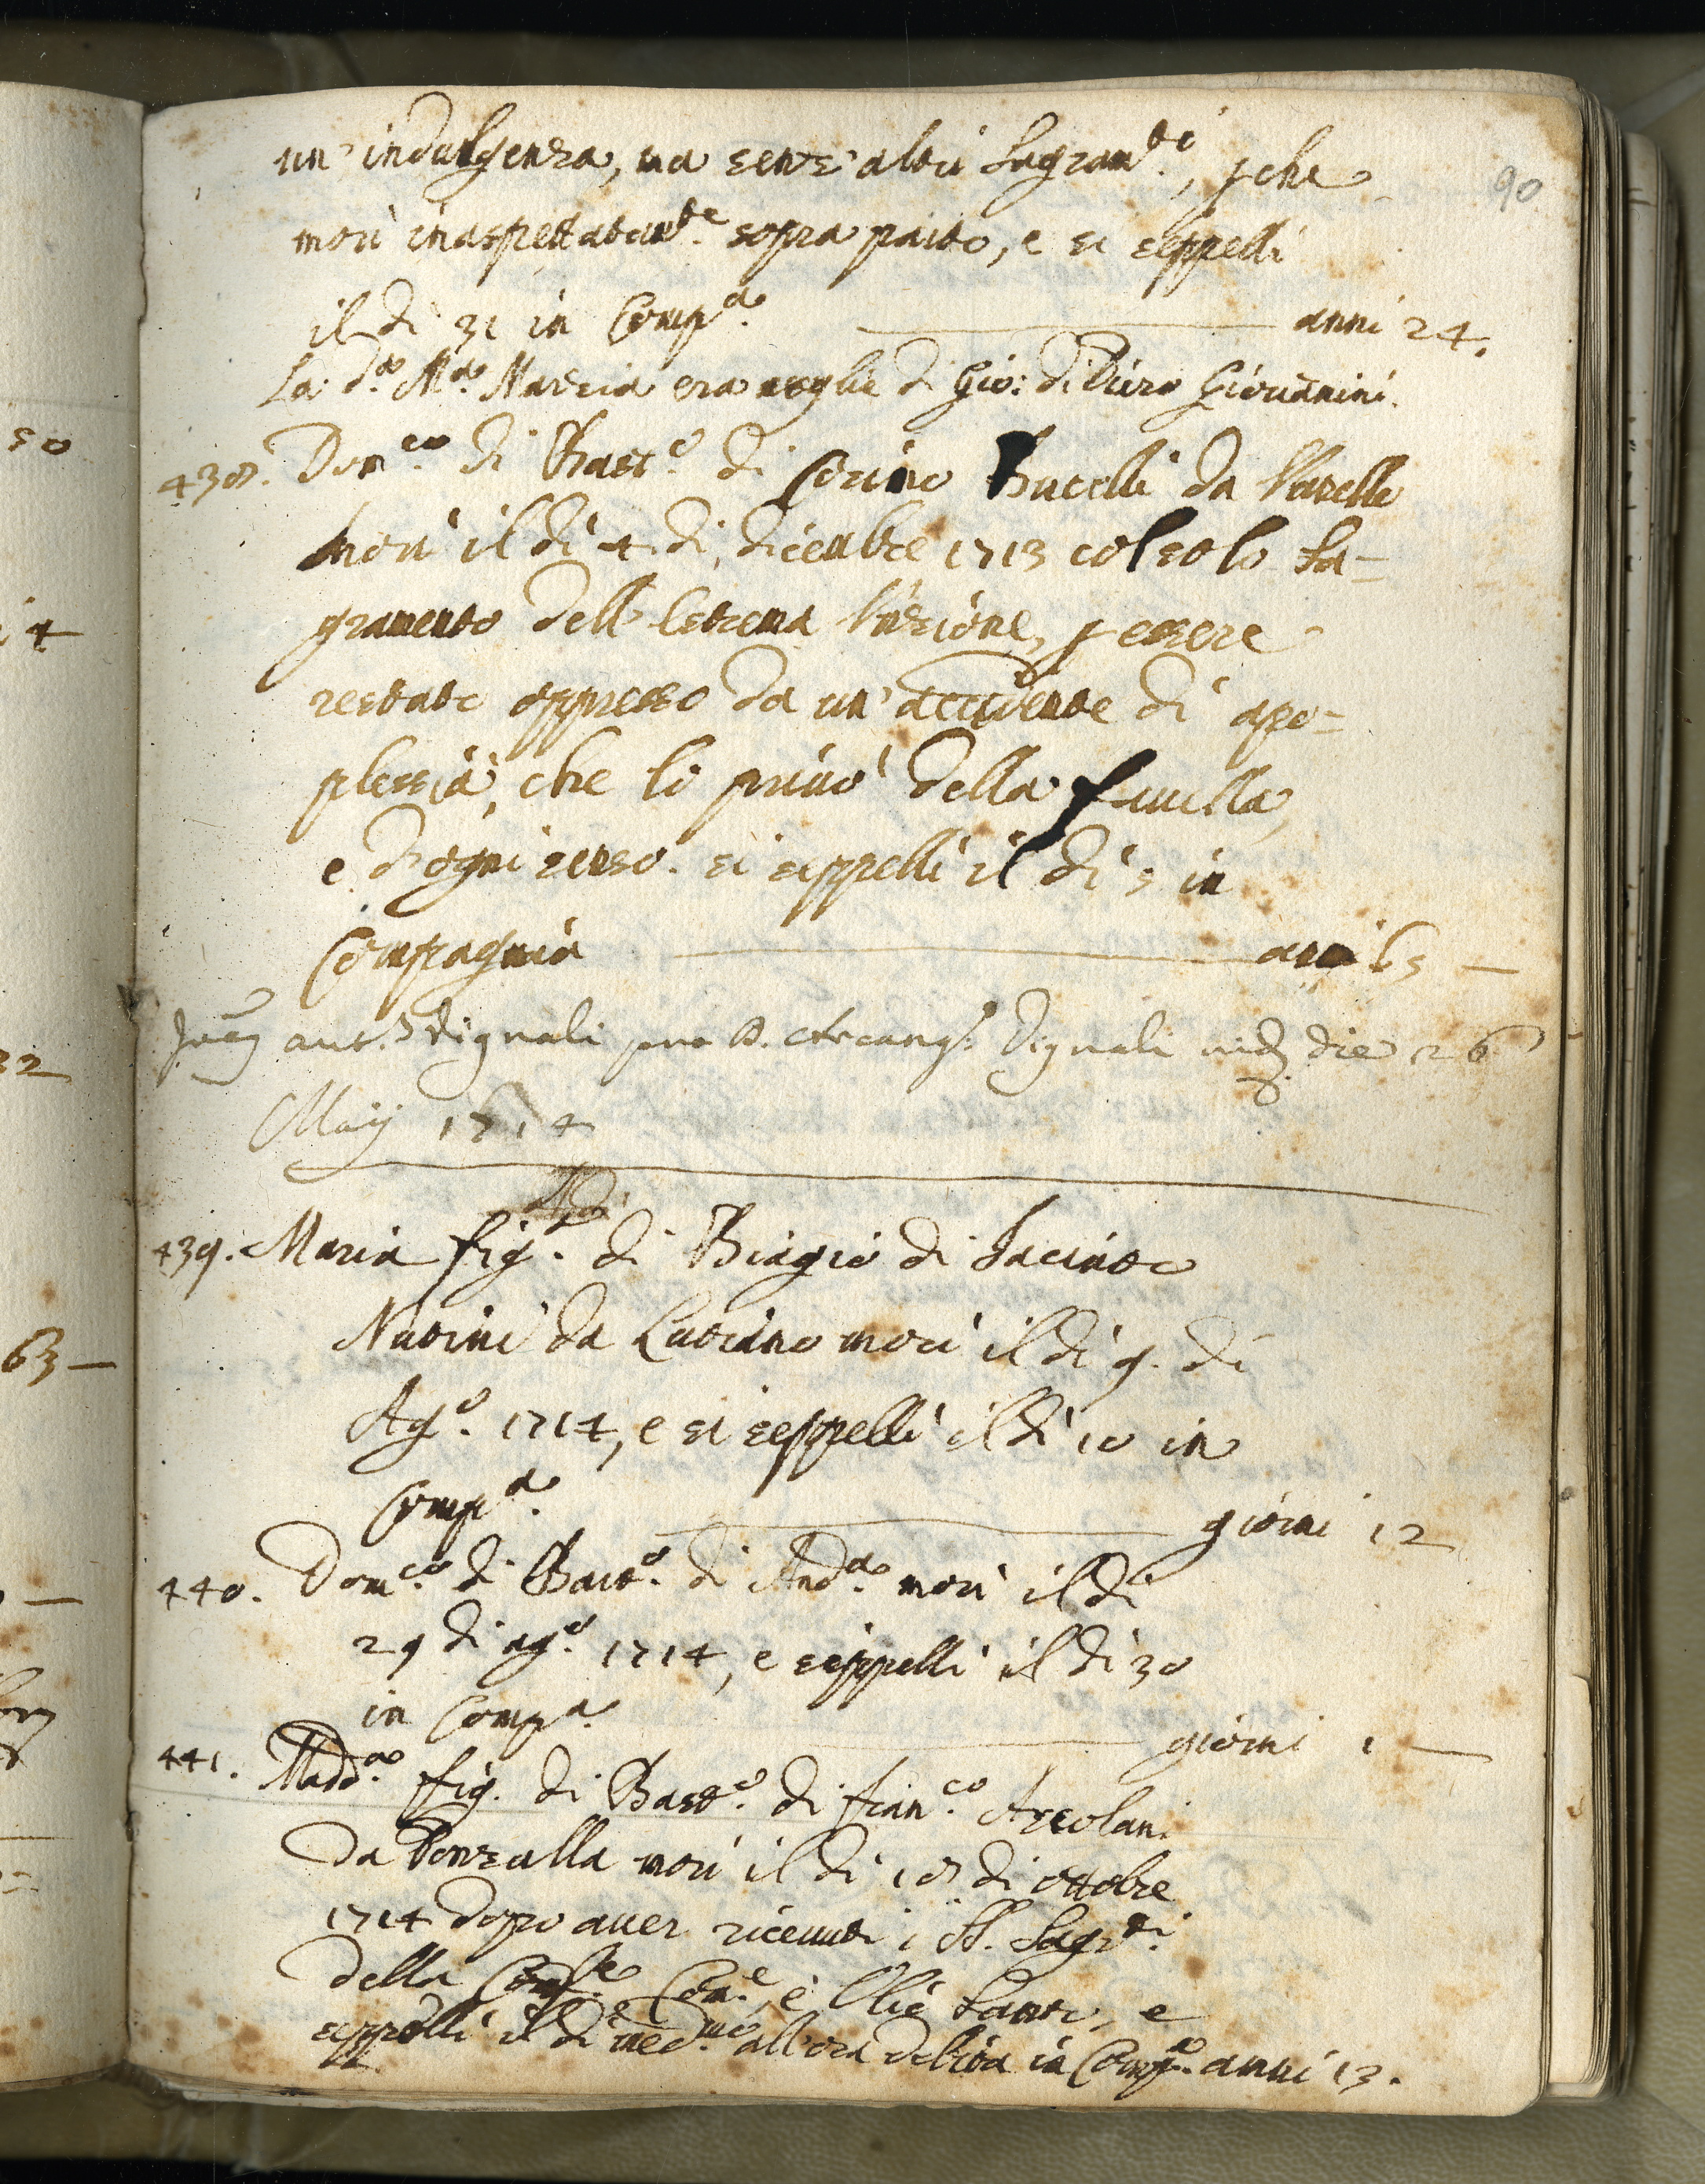 90
un'indulgenza, ma senz'altri Sagram.ti, p che
morì inaspettatam.te sopra parto, e si seppellì
il dì 31 in Comp.a anni 24.
La d.a M.a Narzia era moglie di Gio: di Piero Giovannini.
438. Dom.co di Bast.o di Cosimo Bucelli da Varelle
morì il dì 4 di dicembre 1713 col solo Sa=
gramento dell'Estrema Unzione, p essere
restato oppresso da un'accidente di apo=
plessia, che lo privò della favella,
e d'ogni senso. si seppellì il dì 5 in
Compagnia anni 65
Dignali pro D. Arcang.o Dignali die 26
Maij 1714
439. Maria fig.a di Biagio di Iacinto
Nutini da Lutiano morì il dì 9. di
Ag.o 1714, e si seppellì il dì 10 in
Comp.a giorni 12
440. Dom.co di Bast.o di And.a morì il dì
29 di ag.o 1714, e seppellì il dì 30
in Comp.a giorni 1
441. Madd.a fig. di Bast.o di Fran.co Arcolani
da Ponzalla morì il dì 18 di ottobre
1714 dopo aver ricevuti i SS. Sagr.ti
della Conf.e Com.e, e Olio Santo, e
seppellì il dì med.mo all'ora debita in Comp.a anni 13.